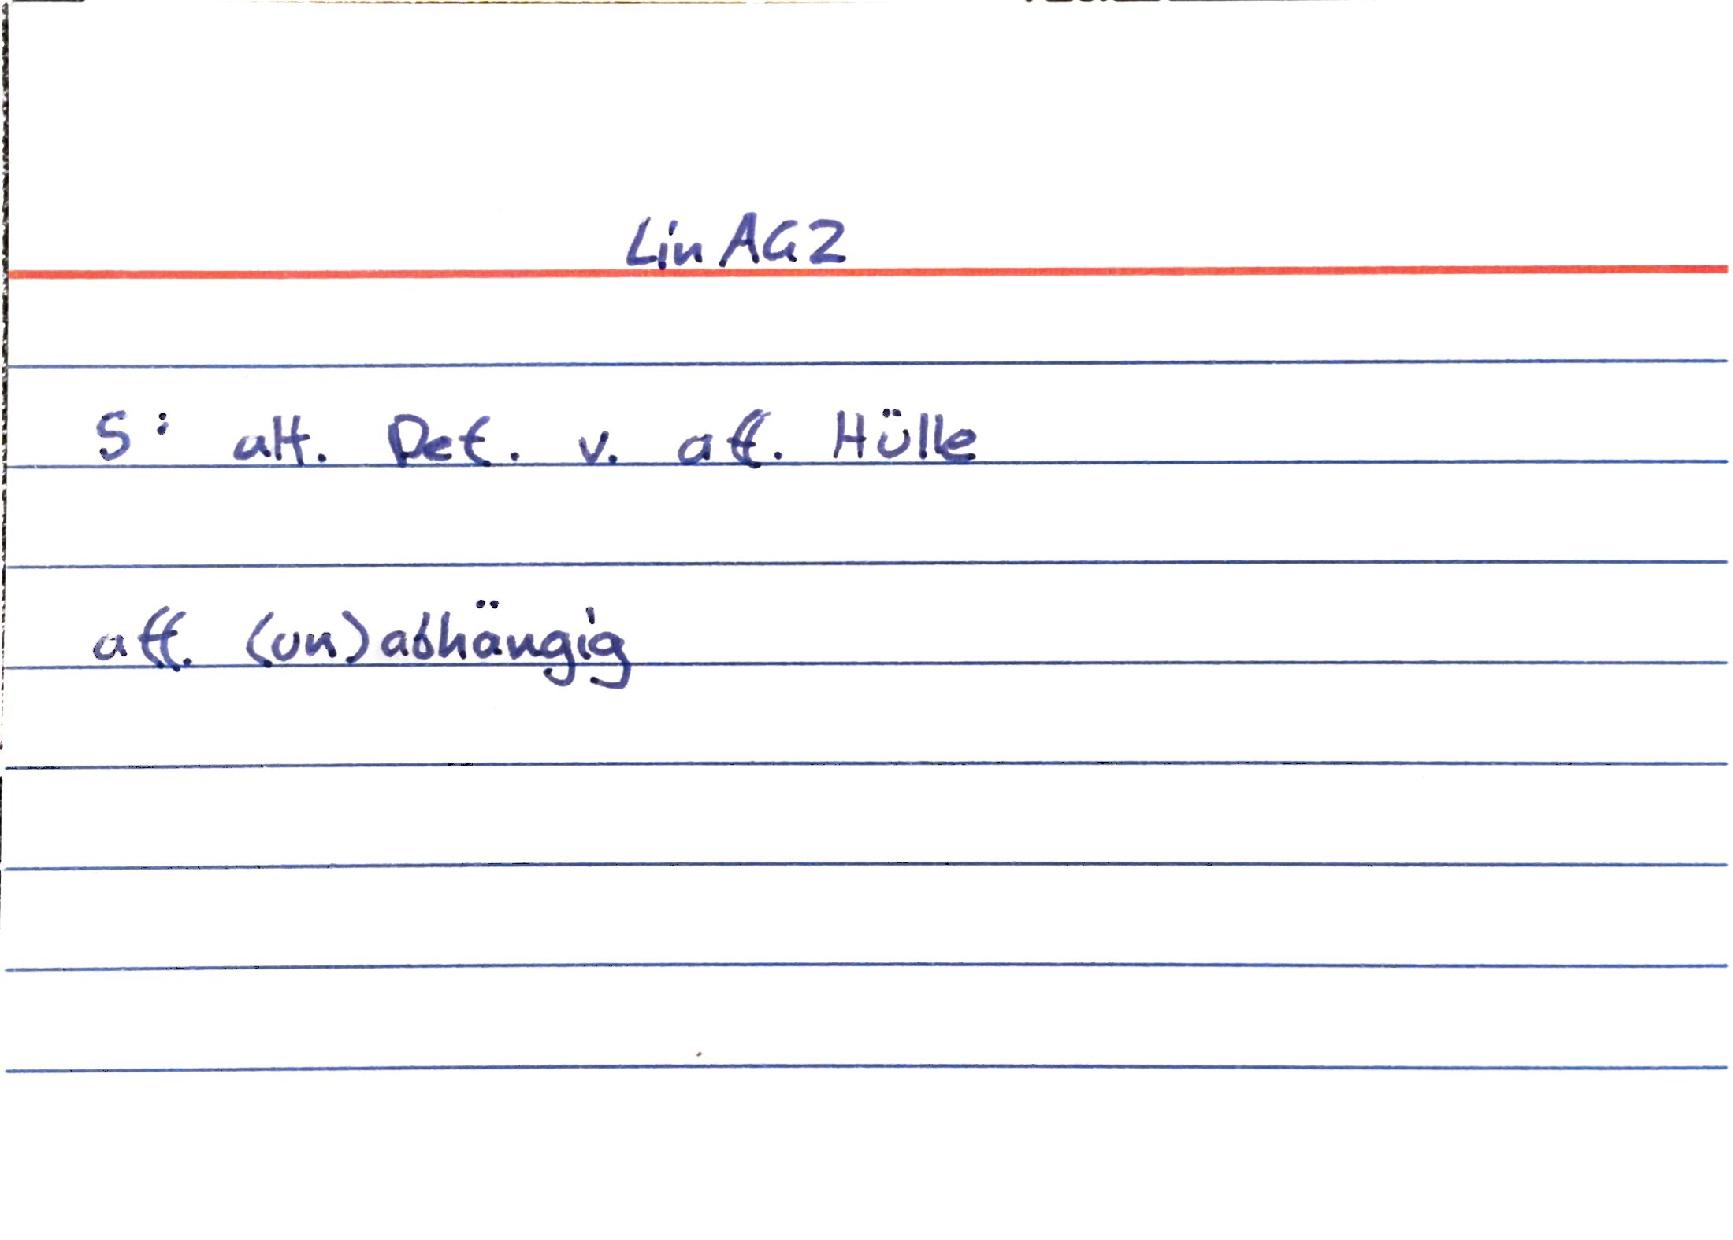 Lin AG 2
S: alt. Def. v. aff. Hülle
aff. (un)abhängig